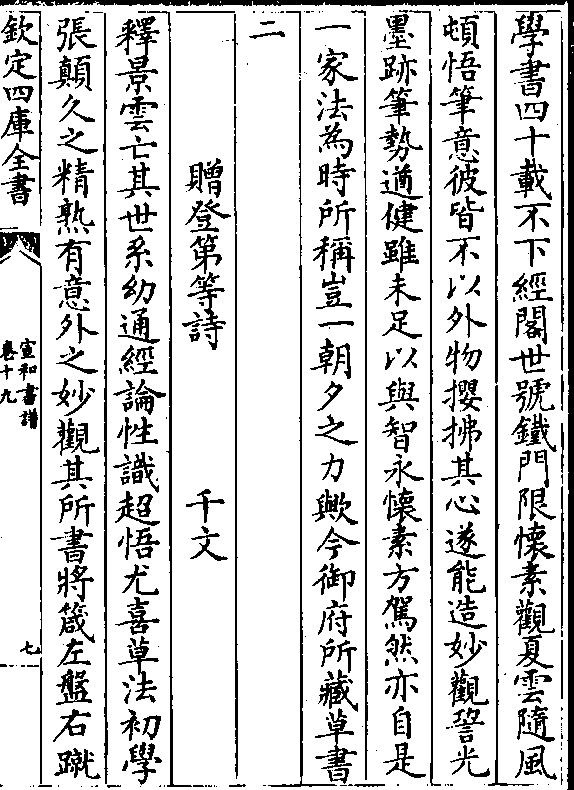 學書四十載不下經閣世號鐵門限懷素觀夏雲隨風
頓悟筆意彼皆不以外物攖拂其心遂能造妙觀䛒光
墨跡筆勢遒健雖未足以與智永懷素方駕然亦自是
一家法為時所稱豈一朝夕之力歟今御府所藏草書
二
贈登第等詩 千文
釋景雲亡其世系幼通經論性識超悟尤喜草法初學
張顛久之精熟有意外之妙觀其所書將箴左盤右蹴
欽定四庫全書
宣和書譜
卷十九
七